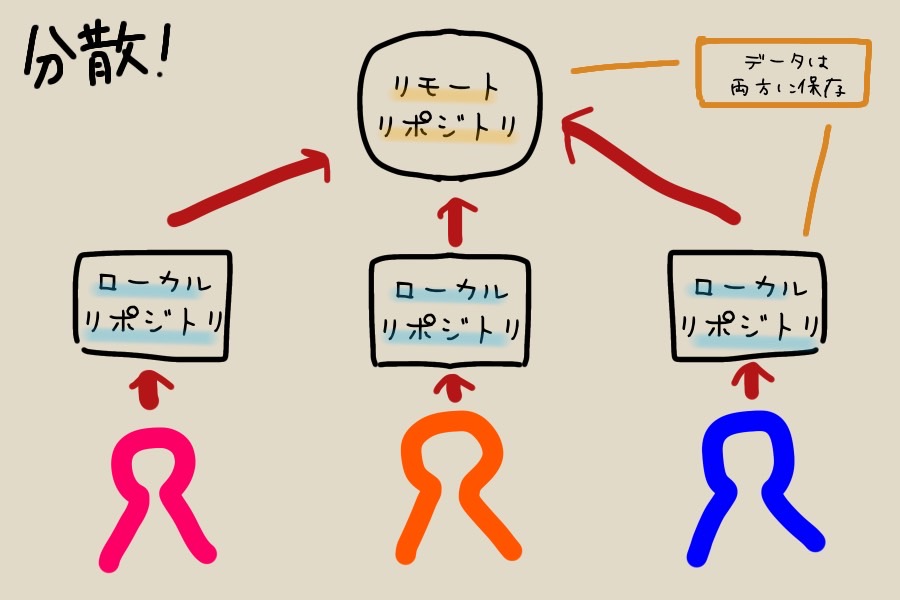 分散!
リモート
リポジトリ
データは
両方に保存
ローカル
リポジトリ
ローカル
リポジトリ
ローカル
リポジトリ